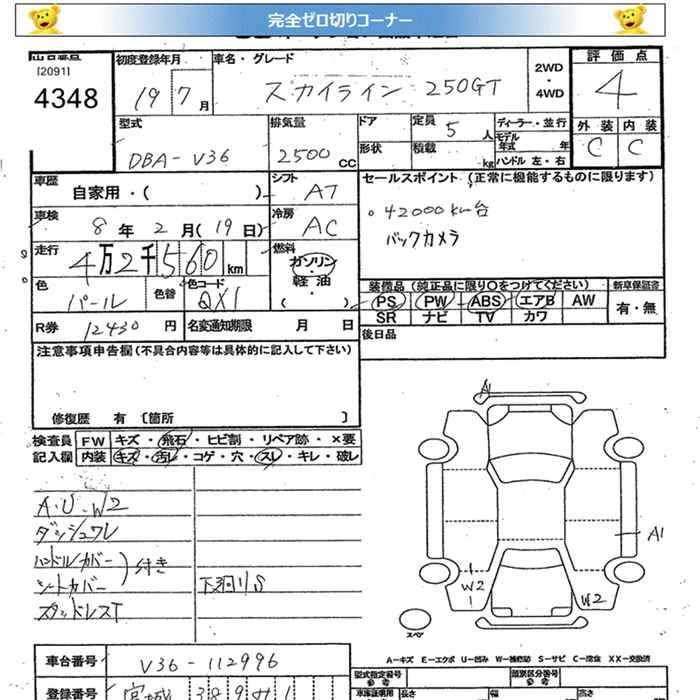 完全ゼロ切りコーナー
[2091]
4348
初度登録年月
19 7 月
車名・グレード
スカイライン 250GT
2WD
・
4WD
評価点
4
外装 内装
C C
型式
DBA-V36
排気量
2500 CC
ドア
形状
定員 5 人
積載 kg
ディーラー・並行
モデル年式 年
ハンドル 左・右
車歴
自家用・( )
シフト AT
セールスポイント (正常に機能するものに限ります)
。42000km台
バックカメラ
車検
8 年 2 月(19 日)
冷房 AC
走行
4万2千560 km
燃料
ガソリン
・
軽油
( )
色
パール
色替
色コード
QX1
装備品 (純正品に限り○をつけてください)
新車保証書
PS PW ABS エアB AW
SR ナビ TV カワ
有・無
R券 12430 円
名変通知期限 月 日
後日品
注意事項申告欄 (不具合内容等は具体的に記入して下さい)
修復歴 有 〔箇所 〕
検査員記入欄
FW キズ・飛石・ヒビ割・リペア跡・×要
内装 キズ・汚レ・コゲ・穴・スレ・キレ・破レ
A.U.W2
ダッシュワレ
ハンドルカバー
シートカバー
付き
スタッドレスT
下廻りS
A1
A1
W2
W2
スペア
A−キズ E−エクボ U−凹み W−補修跡 S−サビ C−腐食 XX−交換済
車台番号 V36-112996
登録番号 宮城
型式指定番号
参考
類別区分番号
参考
車庫証明用
長さ
幅
高さ